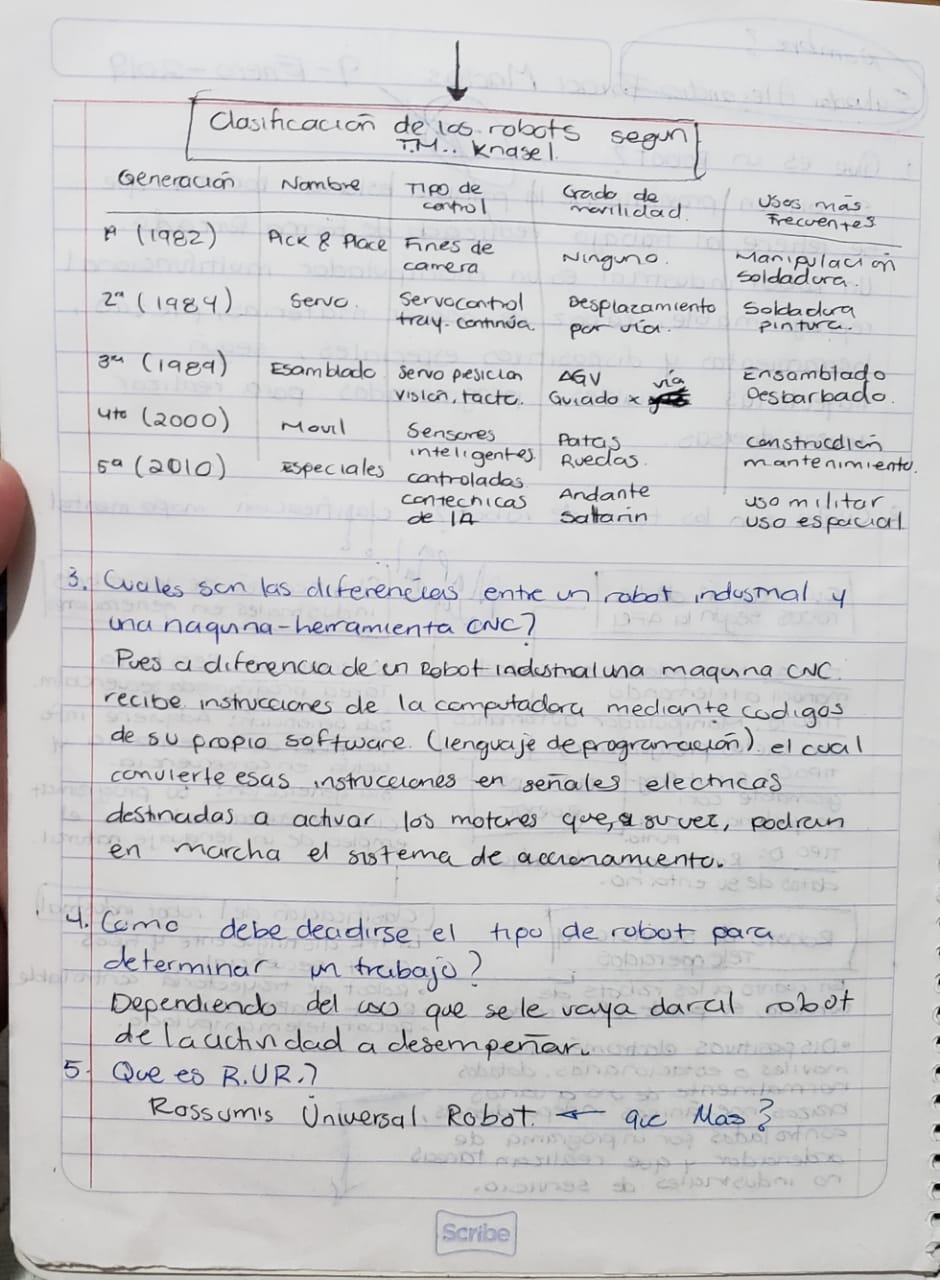 Clasificación de los robots segun
T.M.. Knasel.
Generación Nombre Tipo de control Grado de movilidad. Usos más Frecuentes.
1ª (1982) Pick & Place Fines de camera Ninguno. Manipulación Soldadura.
2ª (1984) Servo. Servocontrol tray. continúa. Desplazamiento por vía. Soldadura pintura.
3ª (1989) Esamblado servo posición visión, tacto. AGV Guiado x vía Ensamblado Desbarbado.
4to (2000) Movil Sensores inteligentes. Patas Ruedas. construcción mantenimiento.
5ª (2010) Especiales controladas con tecnicas de IA Andante saltarin uso militar uso espacial
3. Cuales son las diferencias entre un robot industrial y
una maquina-herramienta CNC?
Pues a diferencia de un Robot industrial una maquina CNC.
recibe instrucciones de la computadora mediante codigos
de su propio software. (lenguaje de programación). el cual
convierte esas instrucciones en señales electricas
destinadas a activar los motores que, a su vez, podran
en marcha el sistema de accionamiento.
4. Como debe decidirse el tipo de robot para
determinar un trabajo?
Dependiendo del uso que se le vaya dar al robot
de la actividad a desempeñar.
5. Que es R.UR.?
Rossum's Universal Robot. ← que Mas?
Scribe